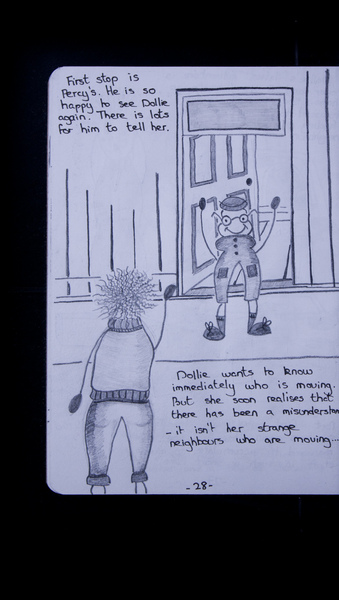 First stop is
Percy's. He is so
happy to see Dollie
again. There is lots
for him to tell her.
Dollie wants to know
immediately who is moving.
But she soon realises that
there has been a misunderstan
- it isn't her strange
neighbours who are moving...
- 28 -